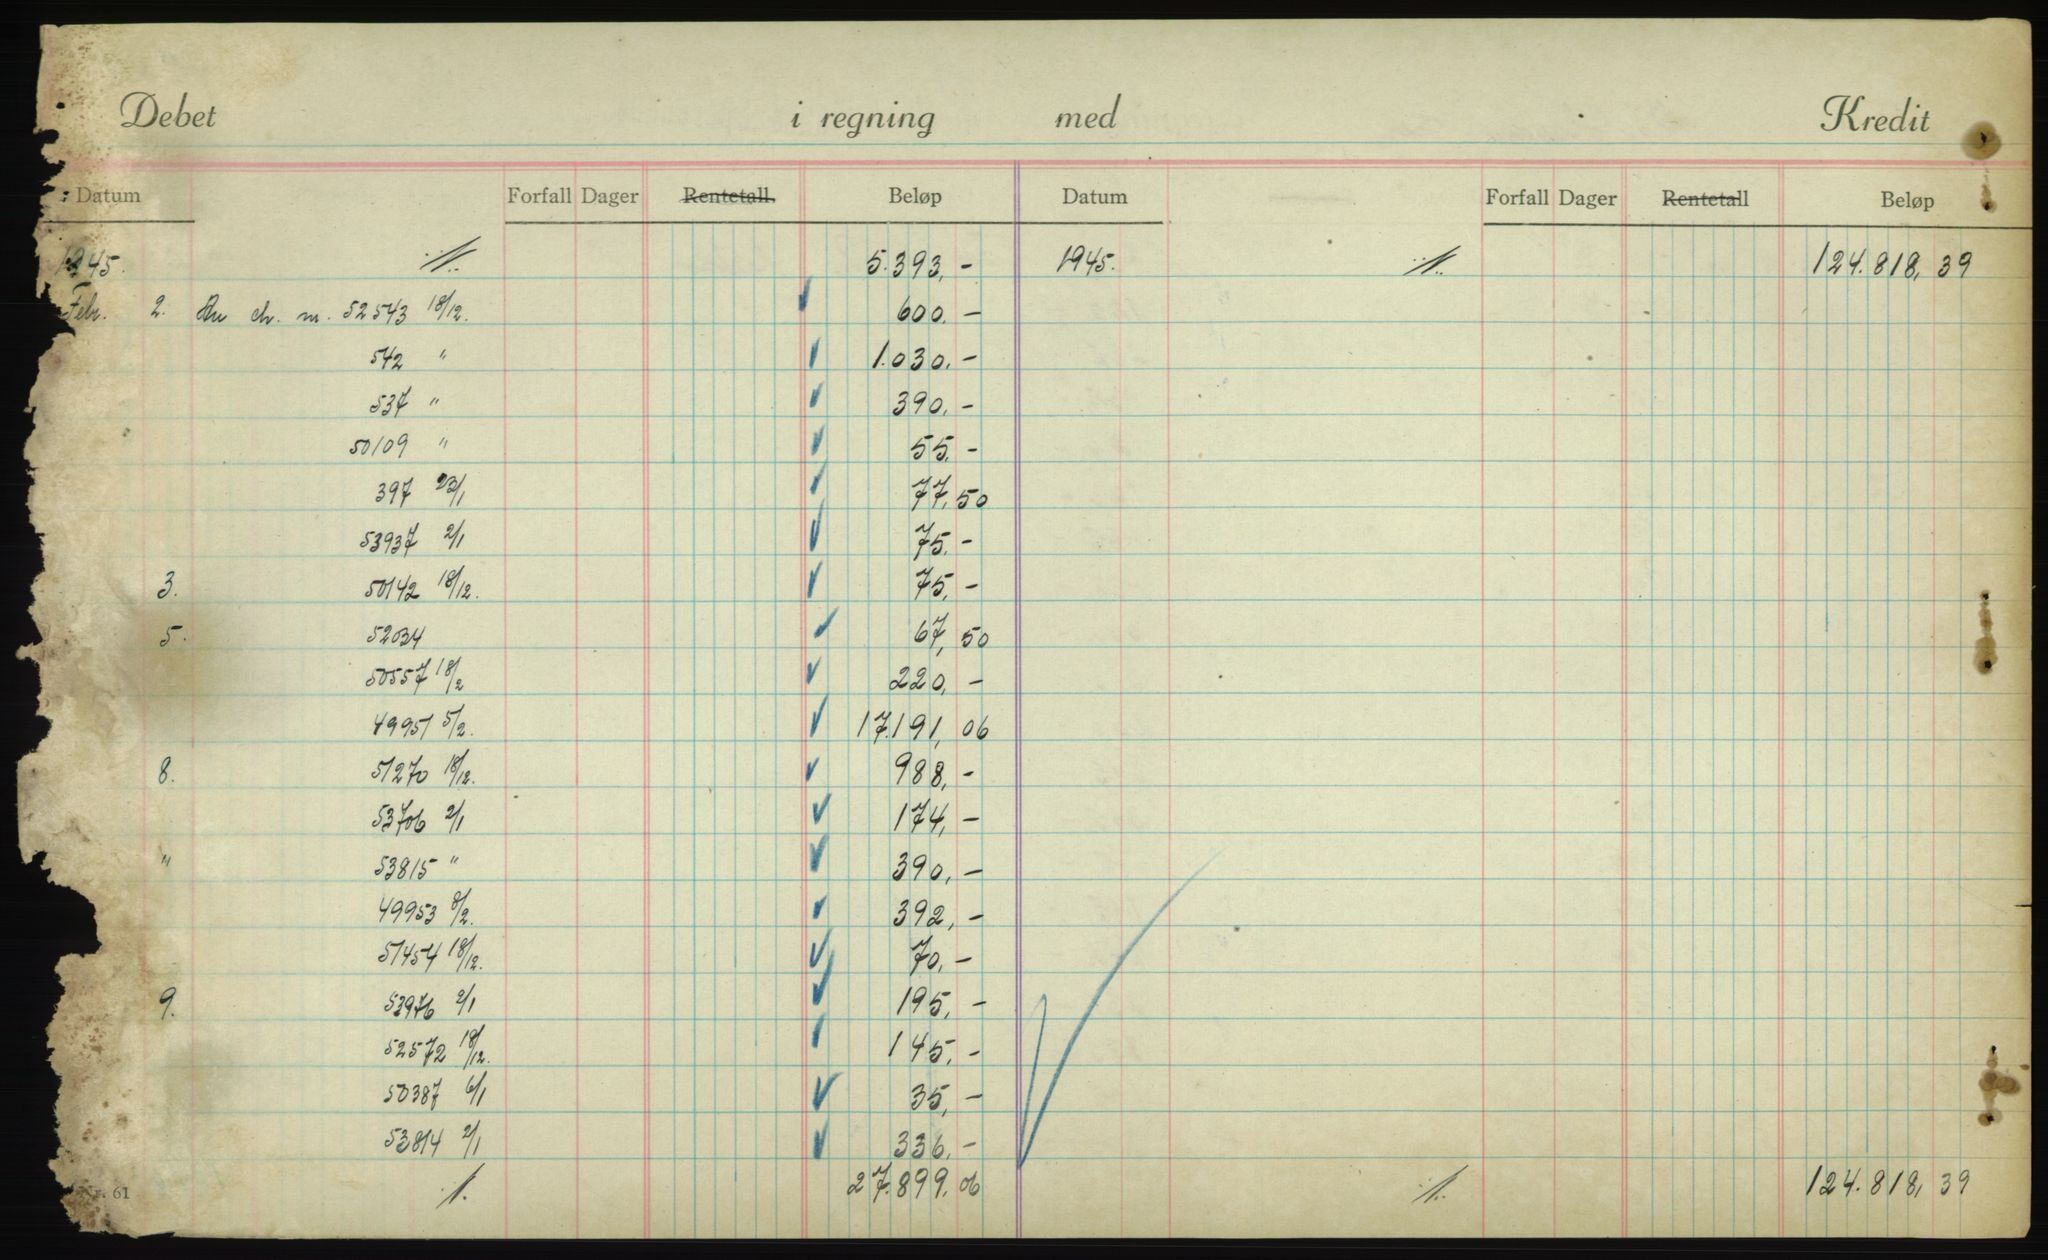 Debet i regning med Kredit
Datum Forfall Dager Rentetall Beløp Datum Forfall Dager Rentetall Beløp
1945. ·/. 5.393,- 1945. ·/. 124.818,39
Febr. 2. An ch. nr. 52543 18/12. 600.-
542 " 1.030.-
537 " 390,-
50109 " 55,-
397 23/1 77,50
53937 2/1 75.-
3. 50142 18/12. 75,-
5. 52034 67,50
50557 18/2 220,-
49951 5/2. 17.191,06
8. 51270 18/12. 988,-
53706 2/1 174,-
" 53815 " 390,-
49953 8/2. 392,-
51454 18/12. 70,-
9. 53976 2/1 195,-
52572 18/12. 145,-
50387 6/1 35,-
53814 2/1 336,-
Nr. 61 ·/. 27.899.06 ·/. 124.818,39